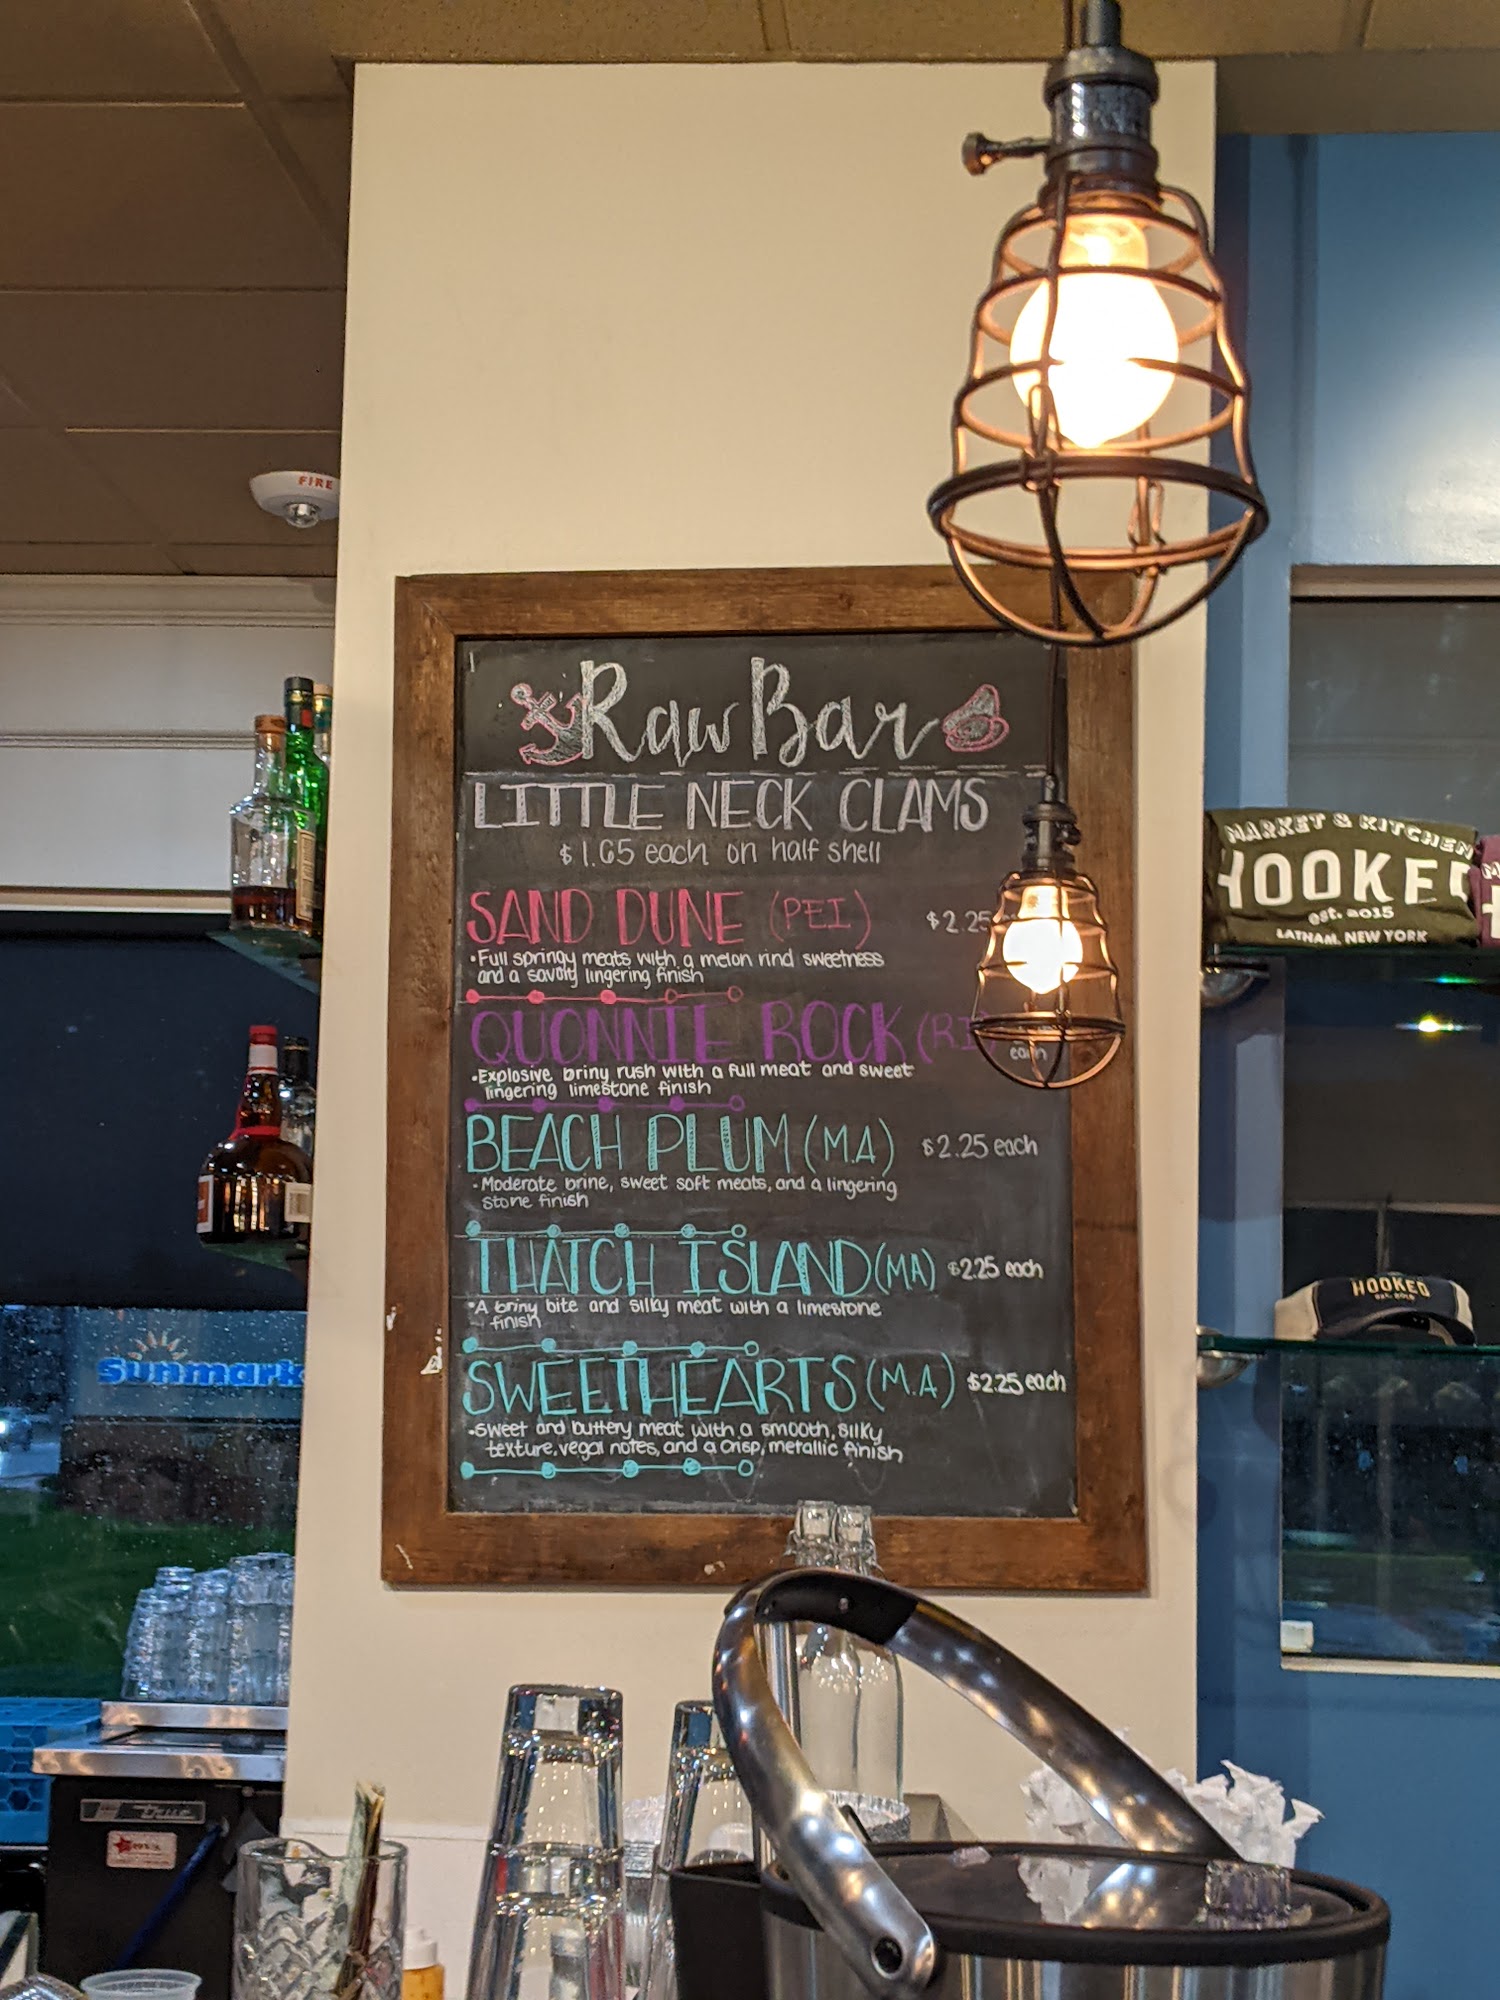 FIRE
Raw Bar
LITTLE NECK CLAMS
$1.65 each on half shell
SAND DUNE (PEI) $2.25
•Full springy meats with a melon rind sweetness
and a savory lingering finish
QUONNIE ROCK (RI)
each
•Explosive briny rush with a full meat and sweet
lingering limestone finish
BEACH PLUM (M.A) $2.25 each
•Moderate brine, sweet soft meats, and a lingering
stone finish
THATCH ISLAND (MA) $2.25 each
•A briny bite and silky meat with a limestone
finish
SWEETHEARTS (M.A) $2.25 each
•Sweet and buttery meat with a smooth, silky
texture, vegal notes, and a crisp, metallic finish
MARKET & KITCHEN
HOOKED
est. 2015
LATHAM, NEW YORK
HOOKED
Sunmark
True